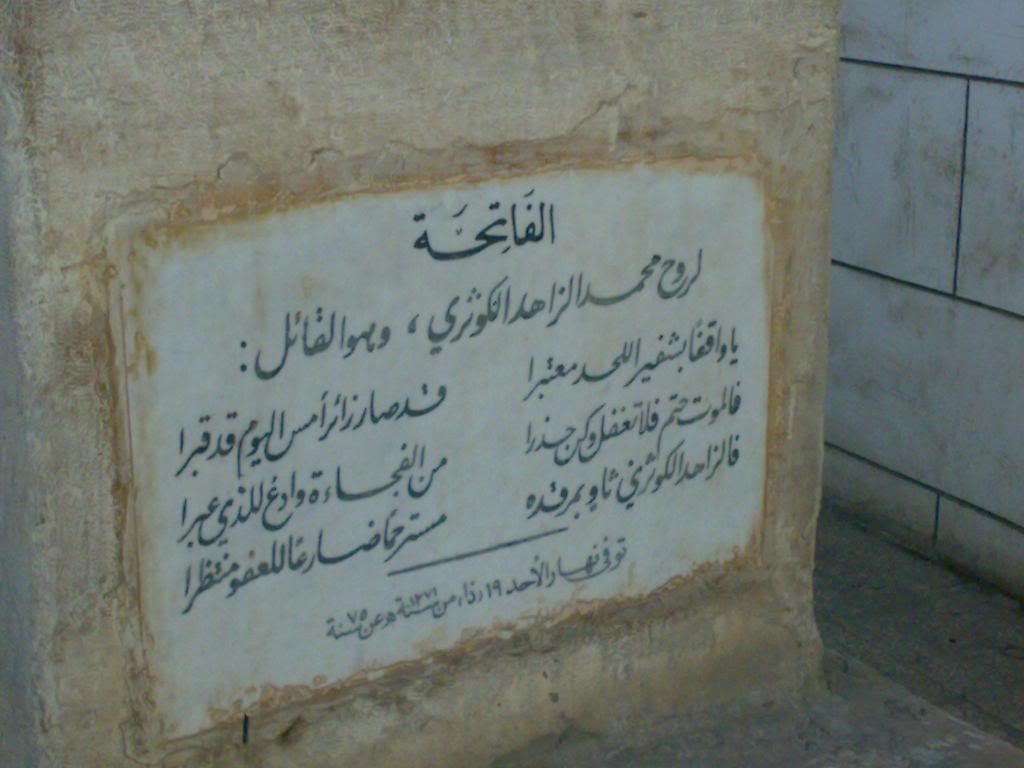 الفَاتِحَة
لروح محمد الزاهد الكوثري ، وهو القائل :
يا واقفًا بشفير اللحد معتبرا قد صار زائر أمس اليوم قد قبرا
فالموت حتم فلا تغفل وكن حذرا من الفجاءة وادع للذي عبرا
فالزاهد الكوثري ثاو بمرقده مسترحمًا ضارعًا للعفو منتظرا
توفي نهار الأحد ١٩ ذاء من سنة ١٣٧١ هـ عن ٧٥ سنة